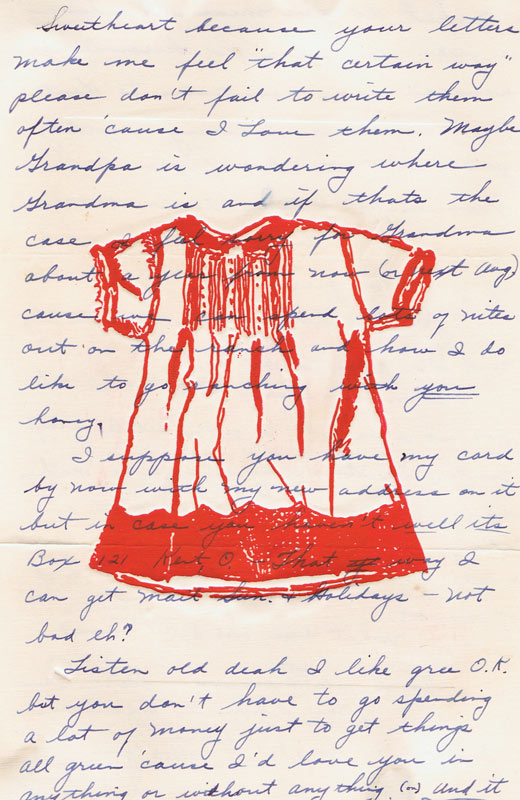 Sweetheart because your letters
make me feel "that certain way"
please don't fail to write them
often 'cause I love them. Maybe
Grandpa is wondering where
Grandma is and if thats the
case I feel sorry for Grandma
about a year from now (or next Aug)
cause we can spend lots of nites
out on the ranch and how I do
like to go ranching with you
honey.
I suppose you have my card
by now with my new address on it
but in case you haven't well its
Box 121 Kent, O. - That way I
can get mail Sun. & Holidays - not
bad eh?
Listen old deah I like gree O.K.
but you don't have to go spending
a lot of money just to get things
all green 'cause I'd love you in
anything or without anything (on) and it